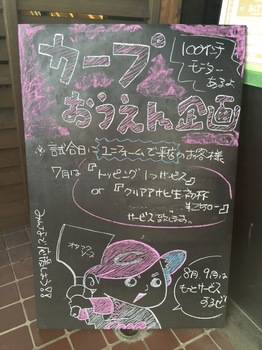 カープ
おうえん企画
100インチ
モニター
あるよ
※試合日にユニフォームで来店のお客様
7月は『トッピング1つサービス』
or『クリアアサヒ生中杯
¥250-』
サービス致します。
みんなで応援しよう!!
オタフク
ソース
8月、9月は
もっとサービス
するぜ